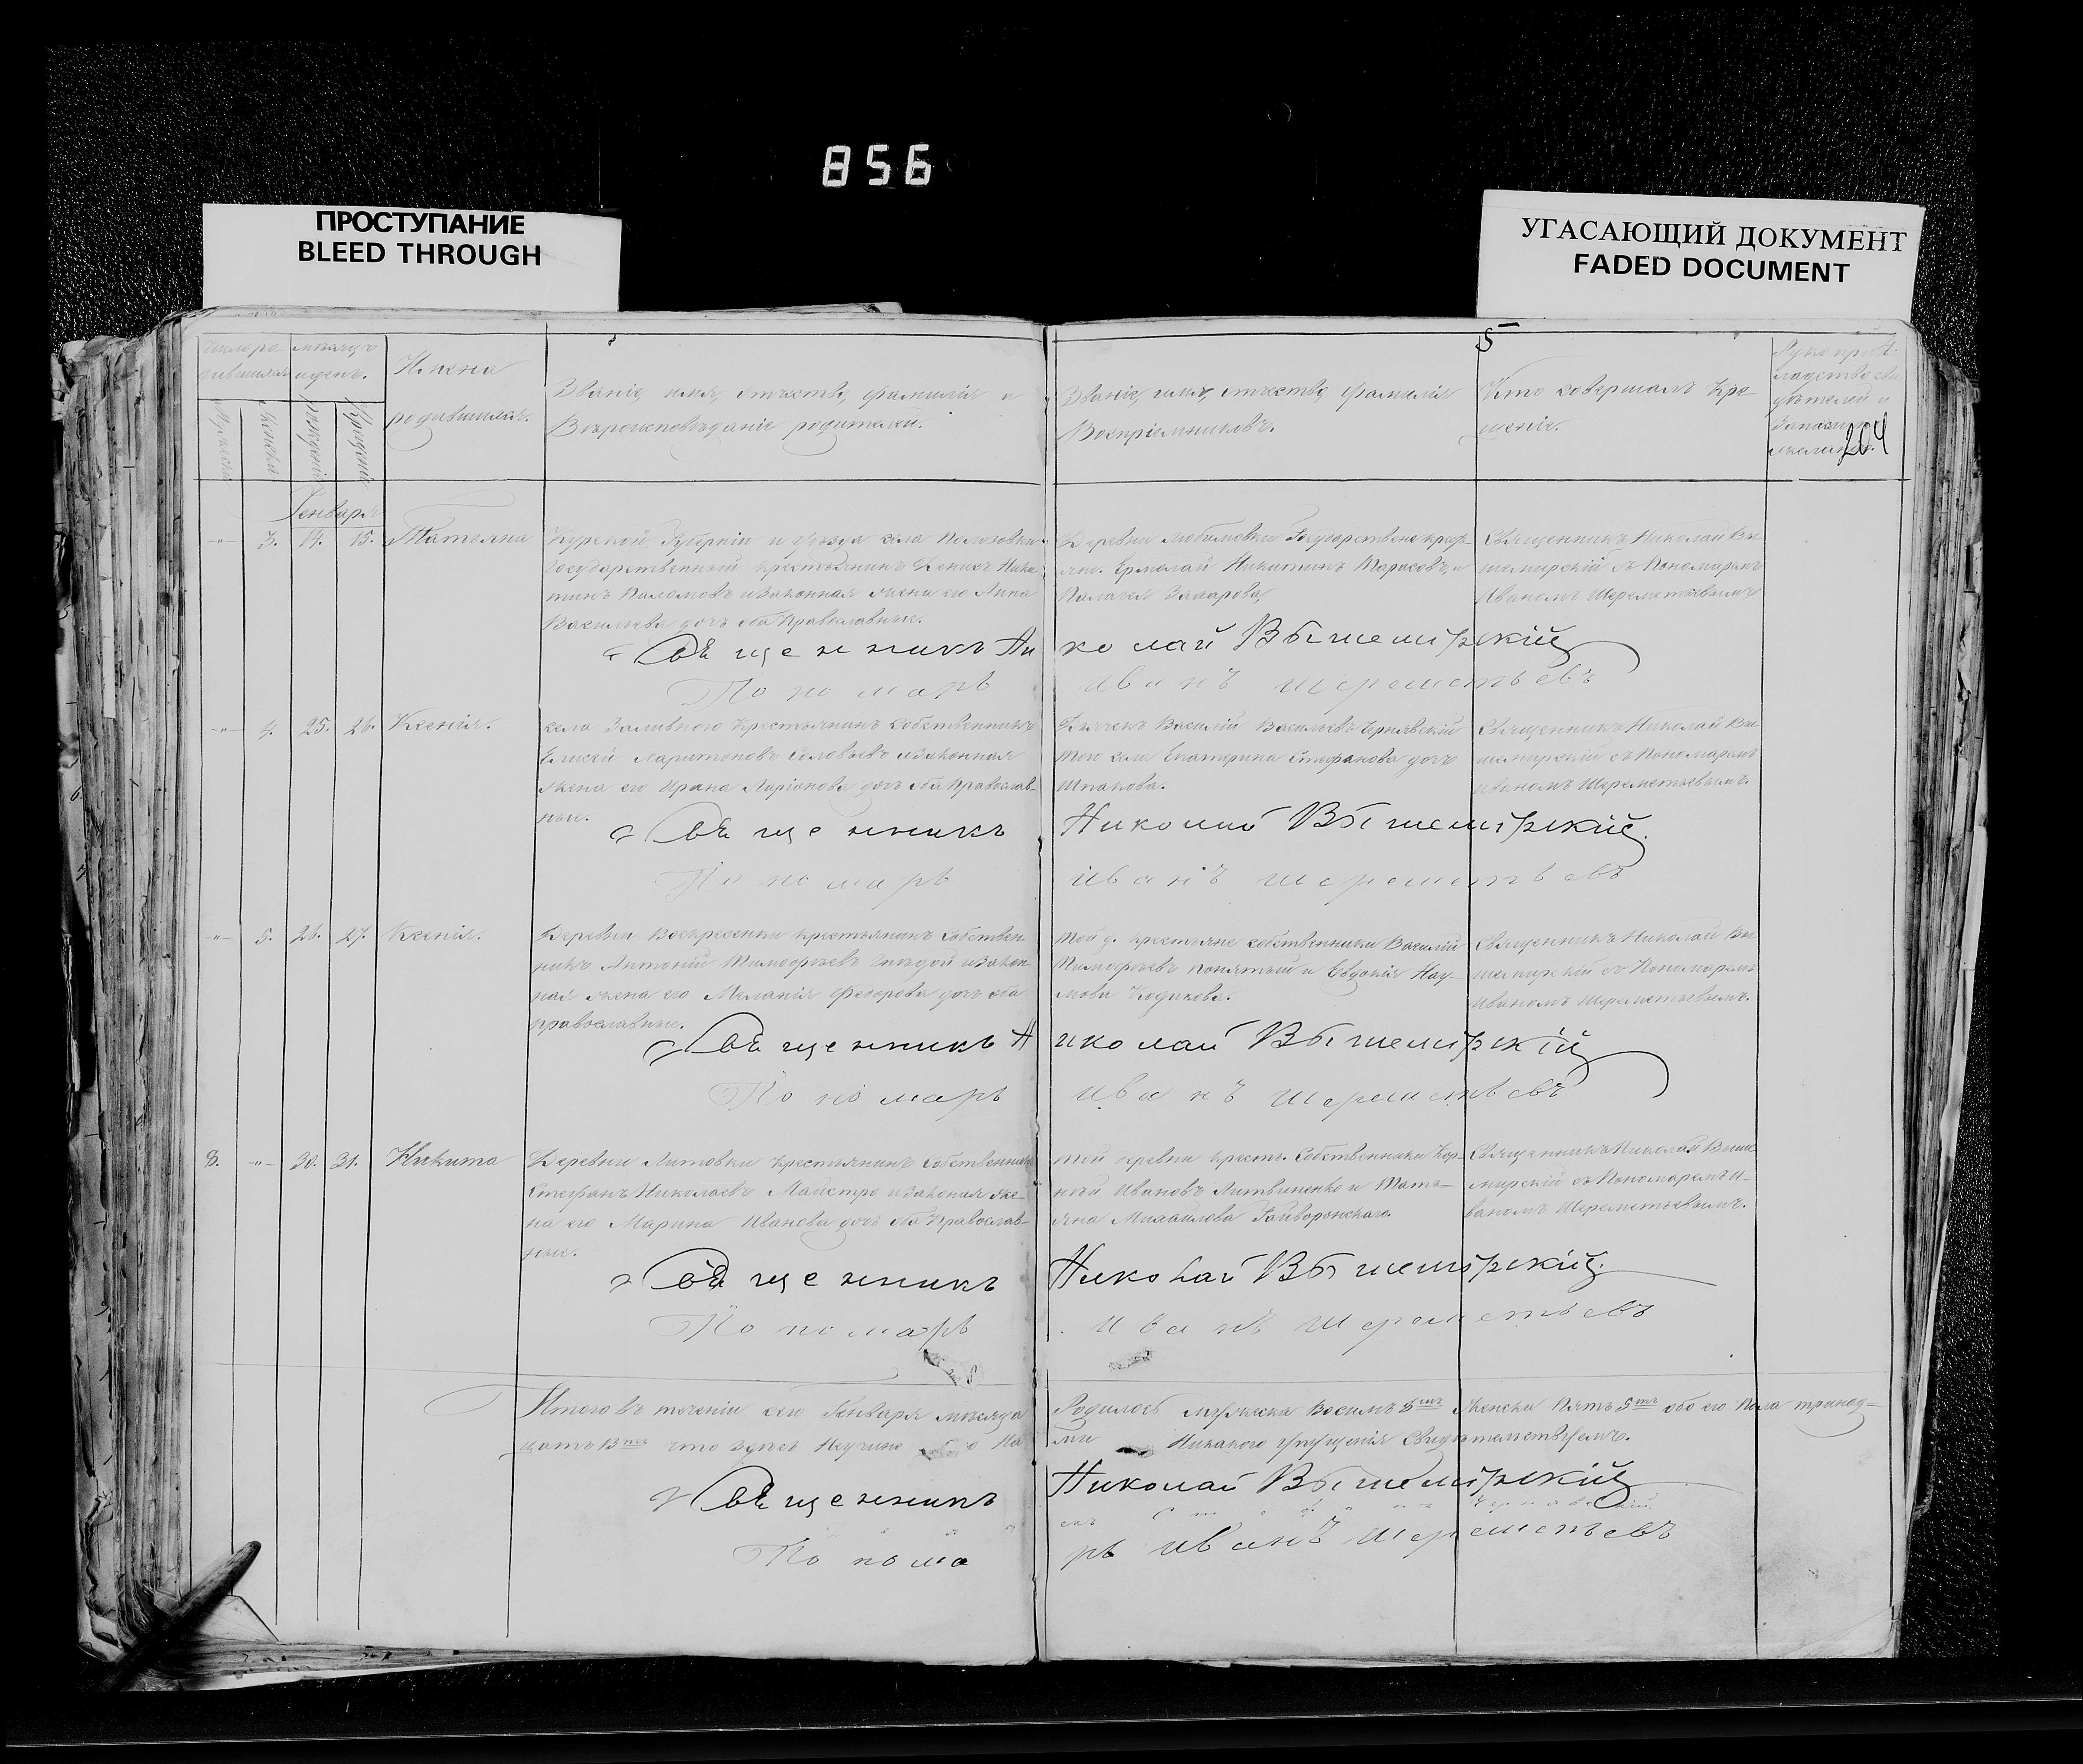 856
ПРОСТУПАНИЕ
BLEED THROUGH
УГАСАЮЩИЙ ДОКУМЕНТ
FADED DOCUMENT
5
264
Число ро- мѣсяцъ
дившихся и день.
Имена
родившихся.
Званіе, имя, отчество, фамилія и
Вѣроисповѣданіе родителей.
Званіе, имя, отчество, фамилія
Воспріемниковъ.
Кто совершалъ Кре-
щеніе.
Генваря
3. 14. 15. Татьяна
Курской Губерніи и уѣзда села
Государственный крестьянинъ Ники-
тинъ и законная жена его Анна
Васильева дочь оба Православные.
Деревни Любимовки Государствен крест-
яне. Ермолай Никитинъ и
Пелагея Захарова,
Священникъ Николай Вы-
шемирскій съ Пономаремъ
Иваномъ Шереметьевымъ
Священникъ Николай Вышемірскій
Пономарь Иванъ Шереметьевъ
4. 25. 26. Ксенія.
села Заливного Крестьянинъ собственникъ
Елисей Харитоновъ Соловьевъ и законная
жена его Ирина Ларіонова дочь оба Православ-
ные.
Дьячекъ Василій Васильевъ Чернявскій
Того села Екатерина Стефанова дочь
Шпакова.
Священникъ Николай Вы-
шемирскій съ Пономаремъ
Иваномъ Шереметьевымъ.
Священникъ Николай Вышемірскій.
Пономарь Иванъ Шереметьевъ
5. 26. 27. Ксенія.
Деревни Воскресенки крестьянинъ собствен-
никъ Антоній Тимофѣевъ и закон-
ная жена его Меланія Федорова дочь оба
православные.
Той д. крестьяне собственники Василій
Тимофѣевъ Понятый и Евдокія Нау-
мова
Священникъ Николай Вы-
шемирскій съ Пономаремъ
Иваномъ Шереметьевымъ.
Священникъ Николай Вышемірскій
Пономарь Иванъ Шереметьевъ
8. 30. 31. Никита
Деревни Литовки крестьянинъ Собственникъ
Стефанъ Николаевъ Майстро и законая же-
на его Марина Иванова дочь оба Православ-
ные.
Той деревни крестъ. Собственники Кор-
нѣй Ивановъ Литвиненко и Тать-
яна Михайлова
Священникъ Николай Выше-
мирскій съ Пономаремъ И-
ваномъ Шереметьевымъ.
Священникъ Николай Вышемірскій.
Пономарь Иванъ Шереметьевъ
Итого въ теченіи сего Генваря мѣсяца Родилось мужеска Восимъ 8мъ Женска Пять 5ть обоего Пола тринад-
цать 13ть что здѣсь Никакого упущенія Свидѣтельствуемъ.
Священникъ Николай Вышемірскій
Пономарь Иванъ Шереметьевъ